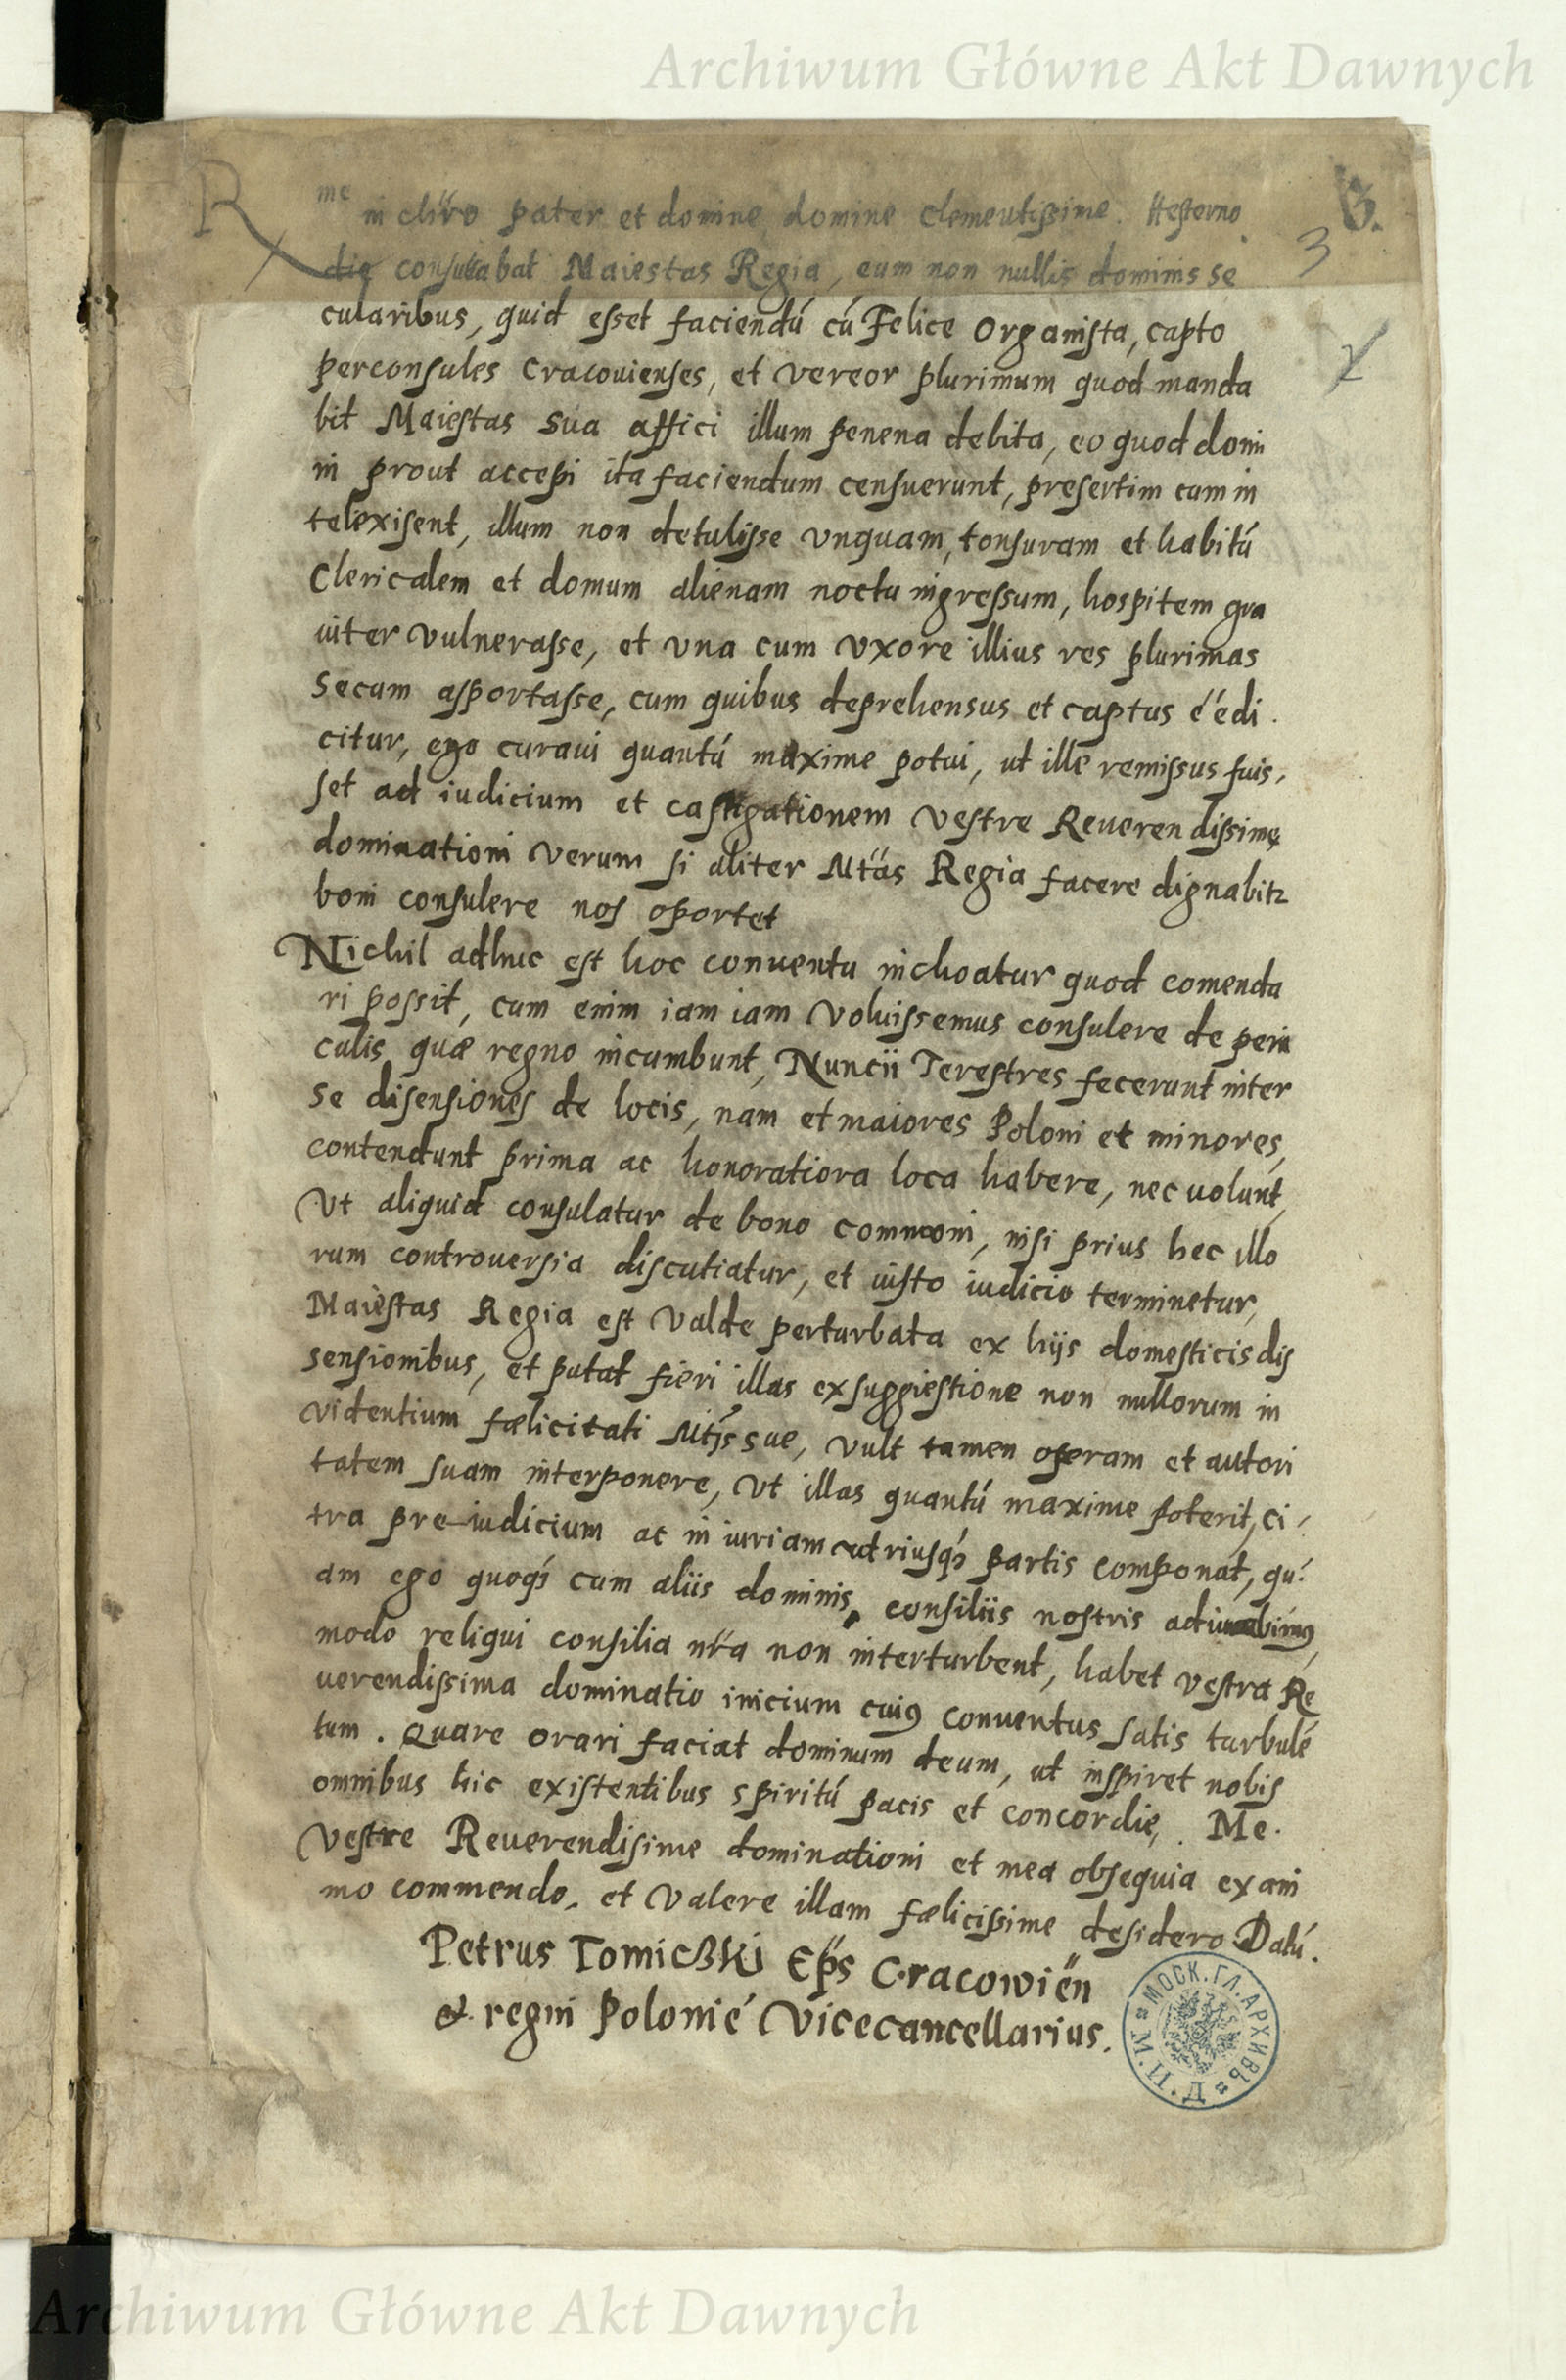 Archiwum Główne Akt Dawnych
R
me in chr̃o pater et domine, domine clementissime. Hesterno
B.
3
die consultabat Maiestas Regia, cum non nullis dominis se
cularibus, quid esset faciendú cú Felice Organista, capto
perconsules Cracouienses, et vereor plurimum quod manda
bit Maiestas sua affici illum penena debita, eo quod domi
ni prout accepi ita faciendum censuerunt, presertim cum in
telexisent, illum non detulisse vnquam, tonsuram et habitú
Clericalem et domum alienam noctu ingressum, hospitem gra
uiter vulnerasse, et vna cum vxore illius res plurimas
secum asportasse, cum quibus deprehensus et captus éé di
citur, ego curaui quantú maxime potui, ut ille remissus fuis,
set ad iudicium et castigationem vestre Reuerendissimę
dominationi verum si aliter Mtãs Regia facere dignabitr
boni consulere nos oportet
Nichil adhuc est hoc conuentu inchoatur quod comenda
ri possit, cum enim iam iam voluissemus consulere de peri
culis quæ regno incumbunt, Nuncii Terestres fecerunt inter
se disensiones de locis, nam et maiores Poloni et minores,
contendunt prima ac honoratiora loca habere, nec uolunt,
Vt aliquid consulatur de bono commoni, nisi prius hec illo
rum controuersia discutiatur, et iusto iudicio terminetur,
Maiestas Regia est valde perturbata ex hijs domesticis dis
sensionibus, et putat fieri illas ex suggiestione non nullorum in
videntium fælicitati Mtis sue, vult tamen operam et autori
tatem suam interponere, Vt illas quantú maxime poterit, ci,
tra pre-iudicium ac in iuriam utriusq₃ partis componat, qú
am ego quoq₃ cum aliis dominis, consiliis nostris adiuuabimus,
modo reliqui consilia nr̃a non interturbent, habet vestra Re
uerendissima dominatio inicium cuiꝰ conuentus satis turbulé
tum. Quare orari faciat dominum deum, ut inspiret nobis
omnibus hic existentibus spiritú pacis et concordie, Me.
Vestre Reuerendisime dominationi et mea obsequia ex ani
mo commendo, et valere illam fælicissime desidero Datú.
Petrus Tomiczki Ep̃s Cracowień
et regni Polonié Vicecancellarius.
МОСК. ГЛ. АРХИВЪ
М. И. Д.
Archiwum Główne Akt Dawnych